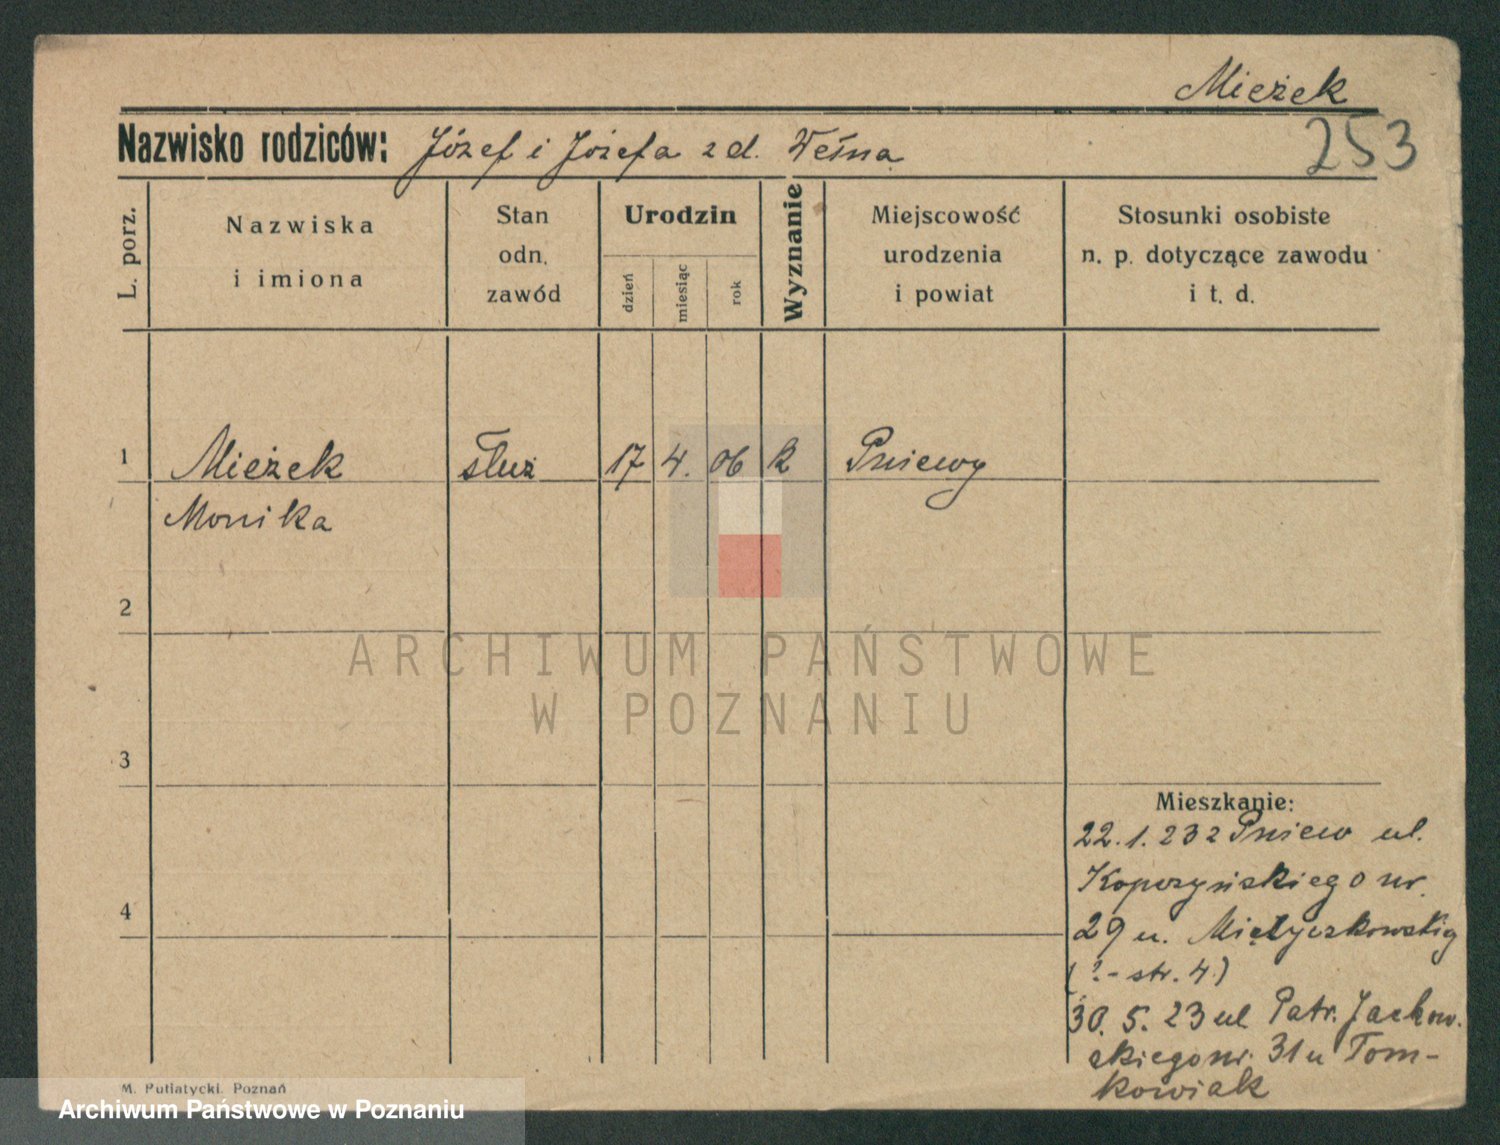 Mieżek
Nazwisko rodziców: Józef i Józefa z d. Weśna
253
L. porz.
Nazwiska
i imiona
Stan
odn.
zawód
Urodzin
dzień
miesiąc
rok
Wyznanie
Miejscowość
urodzenia
i powiat
Stosunki osobiste
n. p. dotyczące zawodu
i t. d.
1 Mieżek służ 17 4. 06 k Pniewy
Monika
2
ARCHIWUM PAŃSTWOWE
W POZNANIU
3
Mieszkanie:
22.1.23 z Pniew ul.
nr.
4
29 u.
(?- str. 4)
30. 5. 23 ul Patr. Jackow-
skiego nr. 31 u Tom-
kowiak
M. Putiatycki. Poznań
Archiwum Państwowe w Poznaniu